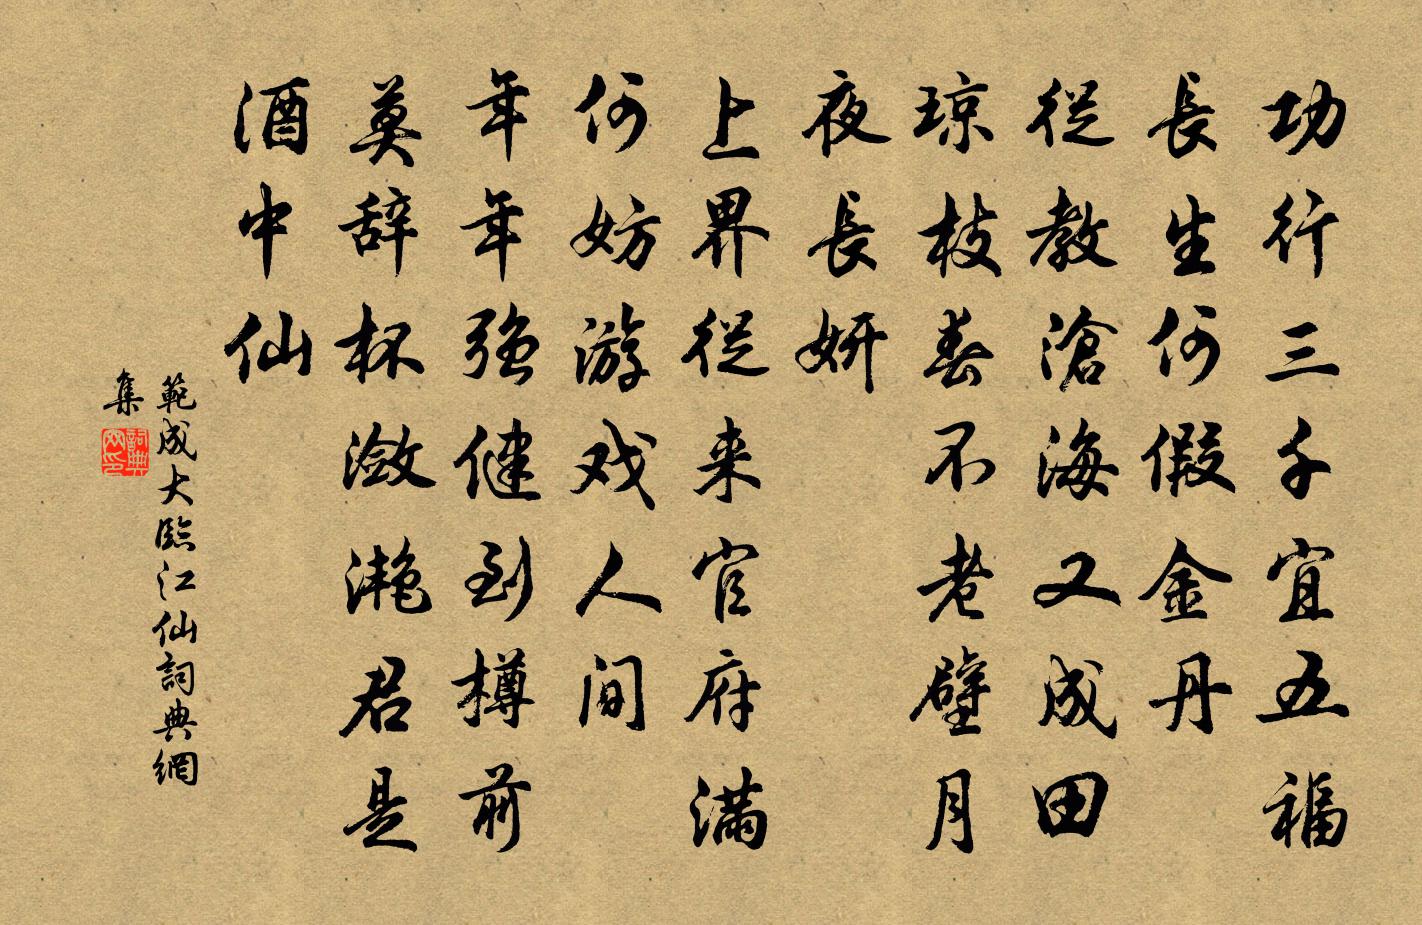 功行三千宜五福
長生何假金丹
從教滄海又成田
琼枝春不老
璧月夜長妍
上界從来官府满
何妨游戏人间
年年强健到樽前
莫辞杯潋滟
君是酒中仙
範成大臨江仙詞典網
集
詞典網印